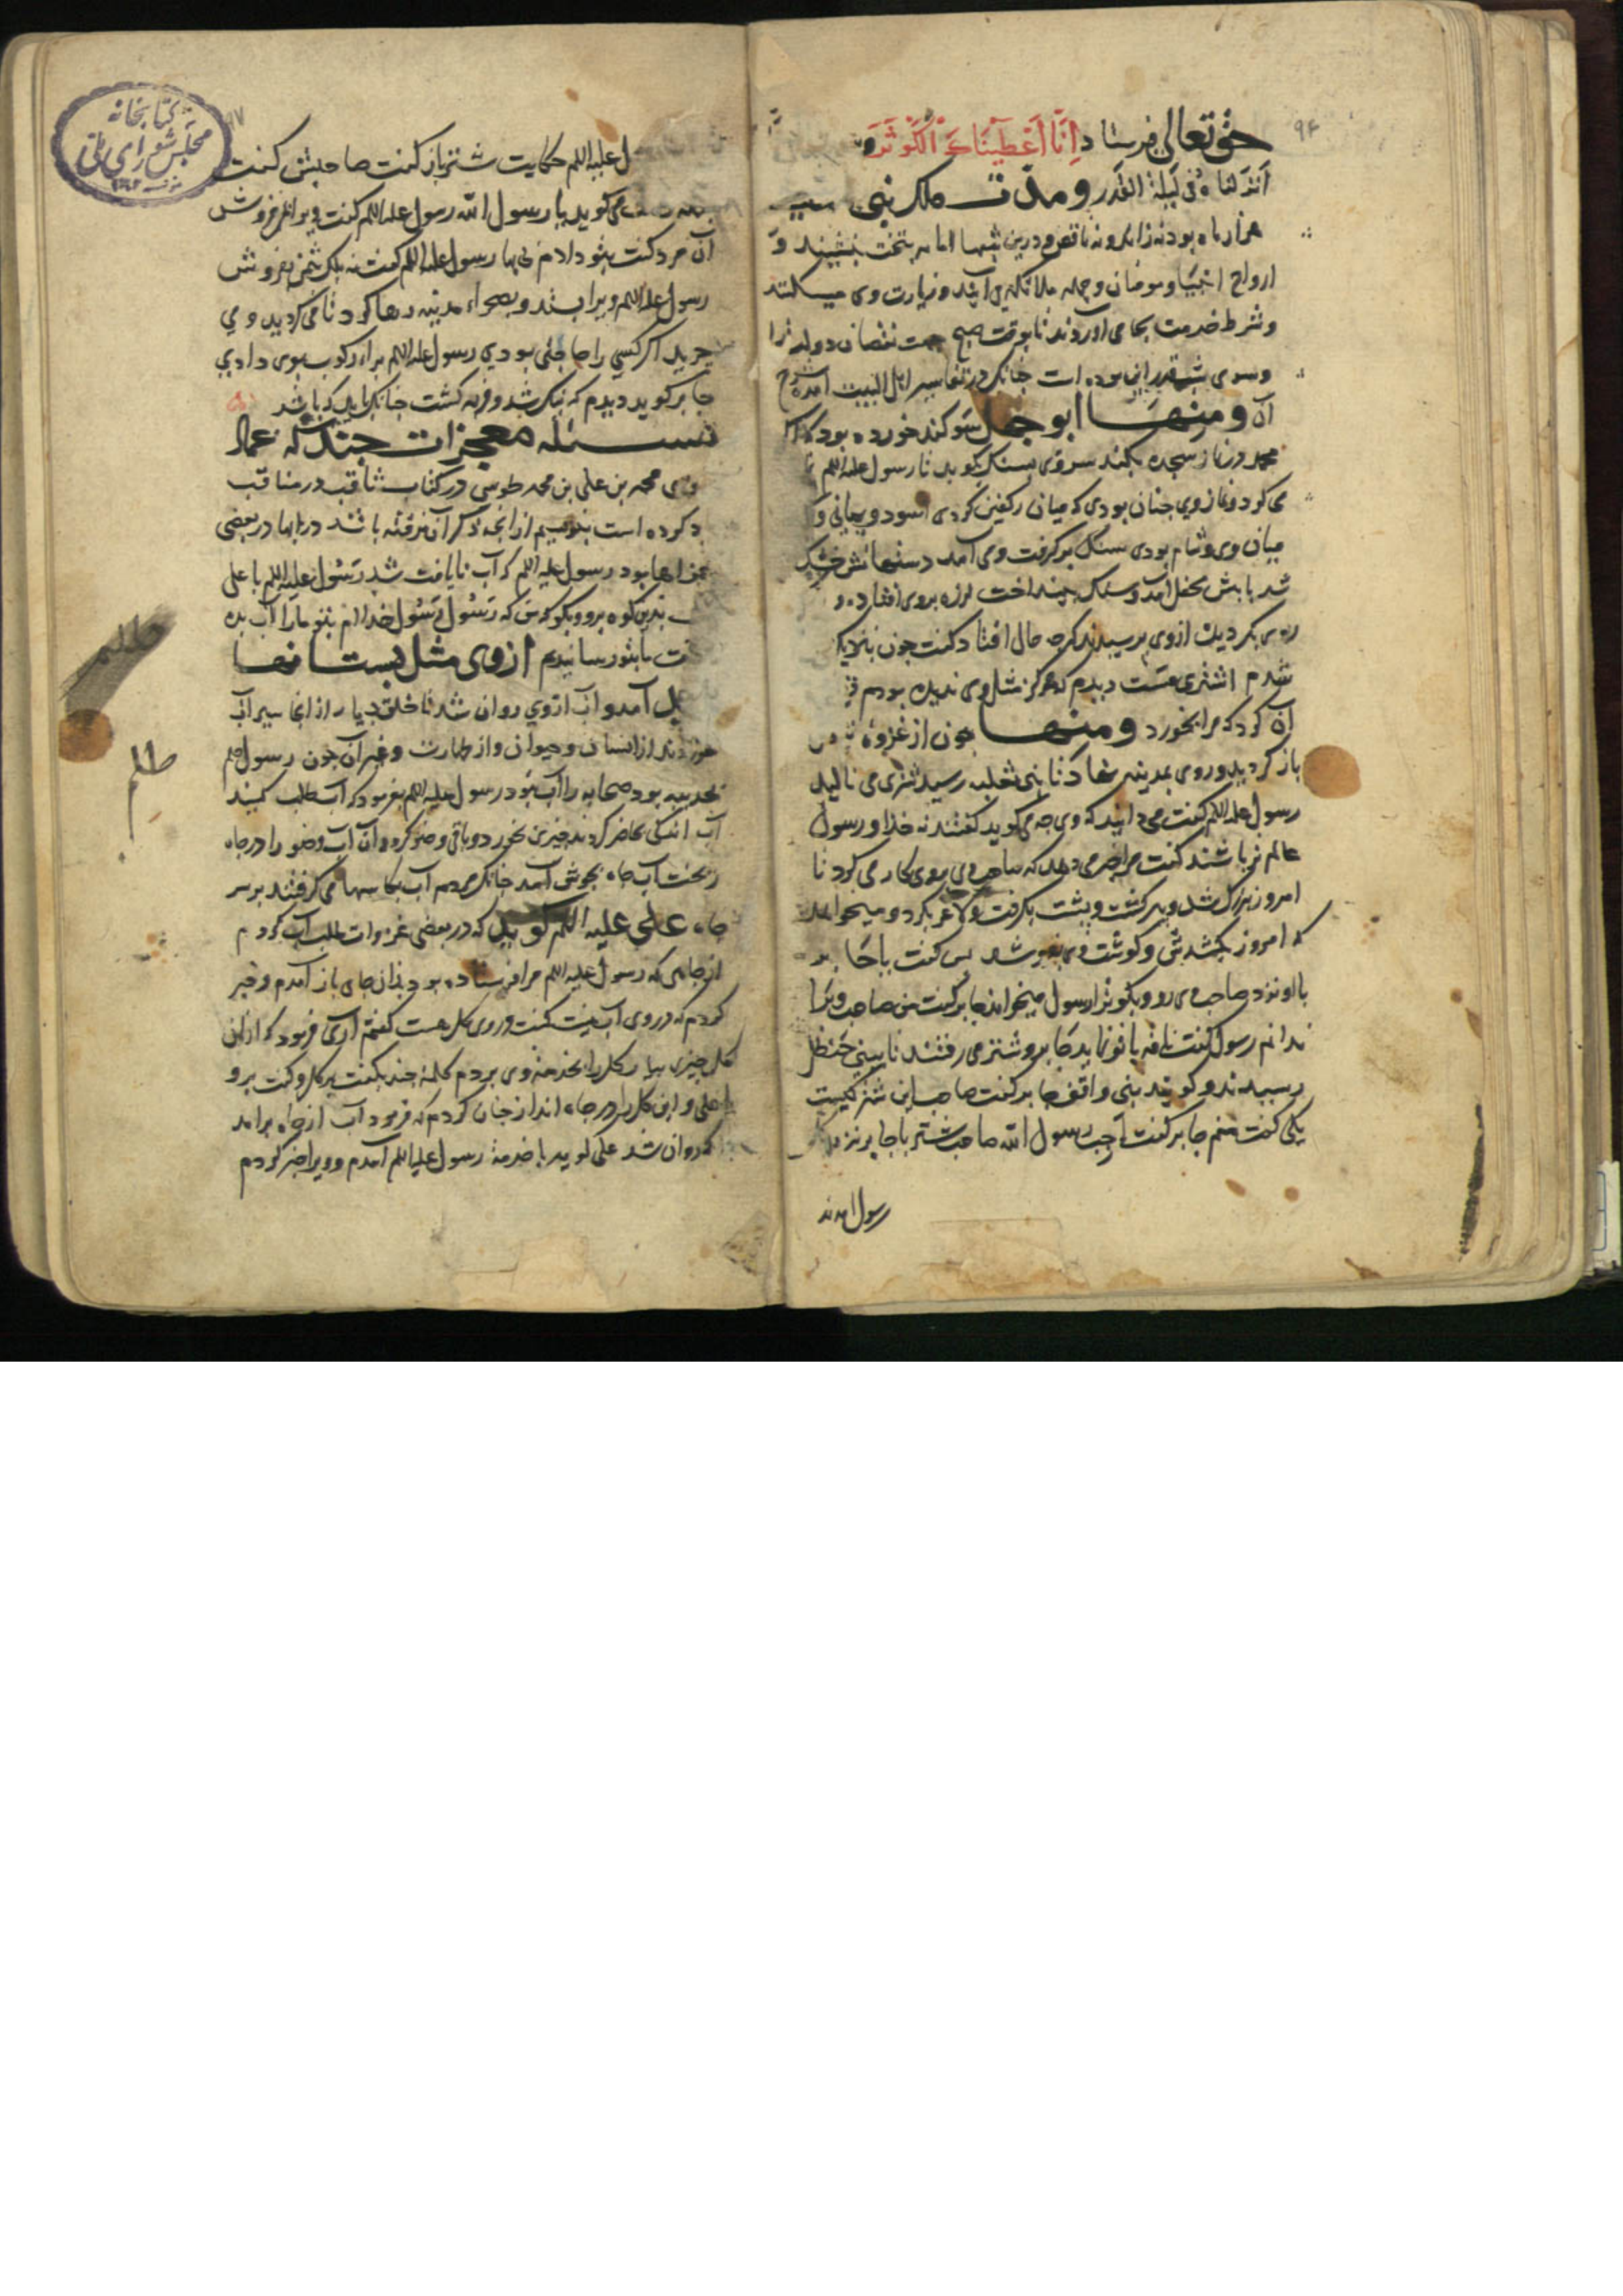 ۹۴
حق تعالی فرستاد اِنَّا اَعْطَیْنَاکَ الْکَوْثَرَ و
اَنْزَلْنَاهُ فی لیلة القدر و مدّت ملک بنی
هزار ماه بود نه زائد و نه ناقص و درین شبها امام بتخت بنشیند و
ارواح انبیا و مومنان و جمله ملائکه می آیند و زیارت وی میکنند
و شرط خدمت بجا می آورند تا بوقت صبح جهت نقصان دولت
و سوی شب قدر این بوده است چنانکه در تفاسیر اهل البیت آمده
آن ومنها ابوجهل سوکند خورده بود که اکر
محمد در نماز سجده بکند سر وی بسنک بکوبد تا رسول علیه السلم
می کرد و نماز وی چنان بودی که میان رکنین کردی اسود و یمانی و
میان وی و شام بودی سنک بر کرفت وی آمد دستهاش خشک
شد پایش بخفل آمد و سنک بینداخت لرزه بر وی افتاد و
بکردید از وی پرسیدند که چه حال افتاد کفت چون بنزدیک
شدم اشتری مست دیدم که هرکز مثل وی ندیده بودم
آن کرد که مرا بخورد ومنها چون از غزوهٔ
باز کردید و روی بمدینه نهاد تا بنی ثعلبه رسید شتری می نالید
رسول علیه السلم کفت می دانید که وی چه می کوید کفتند نه خدا و رسول
عالم تر باشند کفت مرا خبر می دهد که صاحب وی بوی کار می کرد تا
امروز بزرک شد و پیر کشت و پشت بکرفت و لاغر بکرد و میخواهد
که امروز بکشدش و کوشت وی بفروشد پس کفت یا جابر
با او نزد صاحب وی رو و بکو ترا رسول میخواند جابر کفت من صاحب ویرا
ندانم رسول کفت ناقه با تو نماید جابر و شتر می رفتند تا ببنی حنظل
رسیدند و کویند بنی واقف جابر کفت صاحب این شتر کیست
یکی کفت منم جابر کفت اجب رسول الله صاحب شتر با جابر نزد
رسول امدند
کتابخانه
مجلس شورای ملی
علیه السلم حکایت شتر باز کفت صاحبش کفت
می کوید یا رسول الله رسول علیه السلم کفت ویرا بفروش
آن مرد کفت بتو دادم بی بها رسول علیه السلم کفت نه بلک بثمن بفروش
رسول علیه السلم ویرا بستد و بصحراء مدینه رها کرد تا می کردید و می
چرید اکر کسی را حاجتی بودی رسول علیه السلم برای رکوب بوی دادی
جابر کوید دیدم که نیک شد و فربه کشت چنانک باید که باشد
مسئله معجزات چند که عماد
محمد بن علی بن محمد طوسی در کتاب ثاقب در مناقب
کرده است بنویسیم از آنچه ذکر آن نرفته باشد در بابها در بعضی
بود رسول علیه السلم که آب نایافت شد رَسُول علیه السلم با علی
بدین کوه برو و بکو که من رَسُول رَسُول خداام بتو ما را آب بده
از وی مثل بستانها
آمد و آب از وی روان شد تا خلق بسیار از آنجا سیراب
از انسان و حیوان و از طهارت و غیر آن چون رسول صلم
بحدیبیه بود صحابه را آب نبود رسول علیه السلم بفرمود که آب طلب کنید
آب اندکی حاضر کردند چیزی بخورد و باقی وضو کرد و آن آب وضو را در چاه
ریخت آب چاه بجوش آمد چنانک مردم آب بکاسها می کرفتند بر سر
چاه علی علیه السلم کوید که در بعضی غزوات طلب آب کردم
از جایی که رسول علیه السلم مرا فرستاده بود بدان جای باز آمدم و خبر
کردم که در وی آب نیست کفت در وی کل هست کفتم آری فرمود که از آن
کل چیزی بیار کل را بخدمت وی بردم کلمهٔ چند بکفت بر کل و کفت برو
یا علی و این کل را در چاه انداز چنان کردم که فرمود آب از چاه برامد
روان شد علی کوید با خدمت رسول علیه السلم آمدم و ویرا خبر کردم